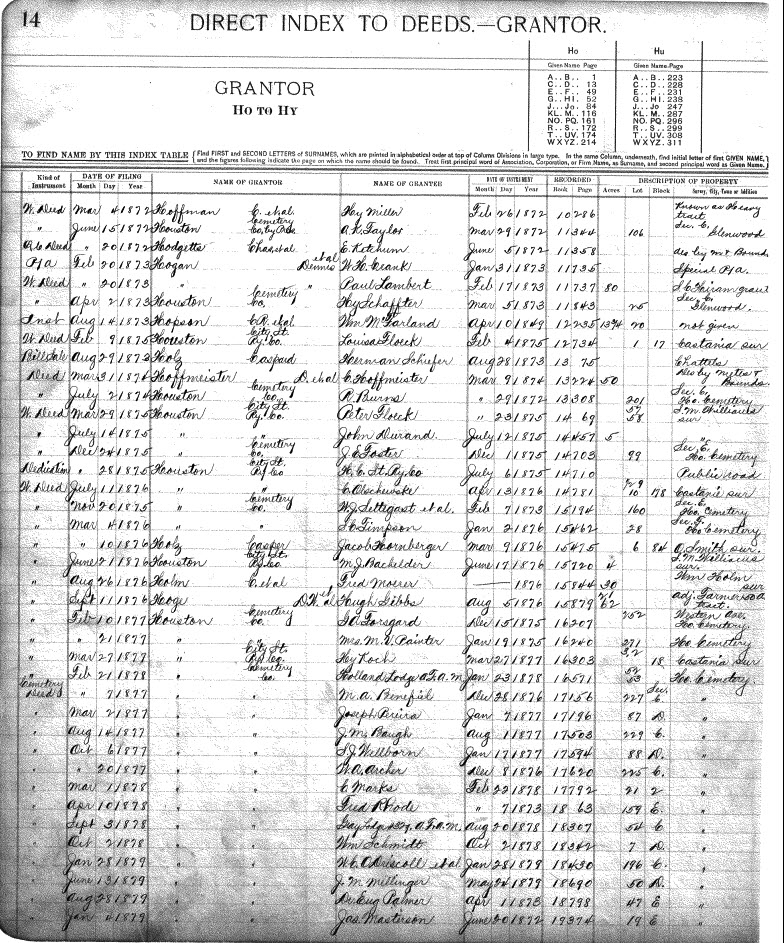 14
DIRECT INDEX TO DEEDS.—GRANTOR.
GRANTOR
Ho to Hy
Ho Hu
Given Name Page Given Name Page
A..B.. 1 A..B.. 223
C..D.. 13 C..D.. 228
E..F.. 49 E..F.. 231
G..HI. 52 G..HI. 238
J...Jo. 84 J...Jo 247
KL. M.. 116 KL. M.. 287
NO. PQ. 161 NO. PQ. 296
R.. S.. 172 R.. S.. 299
T.. UV. 174 T.. UV. 308
WXYZ. 214 WXYZ. 311
TO FIND NAME BY THIS INDEX TABLE { Find FIRST and SECOND LETTERS of SURNAMES, which are printed in alphabetical order at top of Column Divisions in large type. In the same Column, underneath, find initial letter of first GIVEN NAME,
and the figures following indicate the page on which the name should be found. Treat first principal word of Association, Corporation, or Firm Name, as Surname, and second principal word as Given Name. }
Kind of Instrument DATE OF FILING Month Day Year NAME OF GRANTOR NAME OF GRANTEE DATE OF INSTRUMENT Month Day Year RECORDED Book Page DESCRIPTION OF PROPERTY Acres Lot Block Survey, City, Town or Addition
W. Deed Mar 4 1872 Hoffman C. et al. Hy Miller Feb 26 1872 10 286 Known as Heavy tract.
" June 15 1872 Houston Cemetery Co. A. K. Taylor Mar 29 1872 11 344 106 Sec. C. Glenwood
" 20 1872 Hodgetts Chas et al E. Ketchum June 5 1872 11 358 des by m & Bounds
P/A Feb 20 1873 Hogan Dennis et al W. H. Crank Jan 31 1873 11 735 Special P/A.
W. Deed " 20 1873 " " Paul Lambert Feb 17 1873 11 737 80
" Apr 2 1873 Houston Cemetery Co. Hy Schaffter Mar 5 1873 11 843 25 Sec. C. Glenwood.
Inst Aug 14 1873 Hopson C. R. et al Wm McFarland Apr 10 1849 12 235 not given
W. Deed Feb 9 1875 Houston City St. Ry. Co. Louisa Floeck Feb 4 1875 12 734 1 17 Castanie sur
Bill Sale Aug 29 1873 Holz Caspard Herman Schiefer Aug 28 1873 13 75 Chattels
Deed Mar 31 1874 Hoffmeister D. et al C. Hoffmeister Mar 9 1874 13 224 50 des by metes & Bounds.
" July 2 1874 Houston Cemetery Co. R. Burns " 29 1872 13 308 201 Sec. C. Ho. Cemetery
W. Deed Mar 29 1875 Houston City St. Ry. Co. Peter Floeck " 23 1875 14 69 57 58 S. M. Williams sur
" July 14 1875 " " John Durand July 12 1875 14 457 5 "
" Dec 24 1875 " Cemetery Co. J. C. Foster Dec 11 1875 14 703 99 Ho. Cemetery
Dedication " 28 1875 Houston City St. Ry Co H. C. St. Ry. Co July 6 1875 14 710 Public road
W. Deed July 11 1876 " " Apr 13 1876 14 781 Castanie sur
" Nov 20 1875 " Cemetery Co. W. J. Settegast et al. Feb 7 1873 15 194 160 Ho. Cemetery
" Mar 4 1876 " " Timpson Jan 2 1876 15 462 28 Ho Cemetery
" " 10 1876 Holz Casper Jacob Hornberger Mar 9 1876 15 475 6 84 O. Smith sur.
" June 21 1876 Houston City St. Ry. Co. M. J. Bachelder June 17 1876 15 720 4 S. M. Williams sur.
" Aug 26 1876 Holm C. et al Fred Moerer — 1876 15 844 30 Wm Holm sur
" Sept 11 1876 Hoge D. W. et al Hugh Gibbs Aug 5 1876 15 879 adj. Farmer 50 a tract.
" Feb 10 1877 Houston Cemetery Co. G. A. Forsgard Dec 15 1875 16 207 252 Western Ave. Ho. Cemetery
" " 21 1877 " " Mrs. M. V. Painter Jan 19 1875 16 240 271 Ho. Cemetery
" Mar 27 1877 " City St. Ry. Co. Hy Koch Mar 27 1877 16 303 18 Castanie sur
" Feb 21 1878 " Cemetery Co. Holland Lodge A. F. A. M. Jan 23 1878 16 571 52 53 Ho. Cemetery.
Cemetery Deeds " 7 1871 " " M. A. Benefiel Dec 28 1876 17 156 227 Sec. C. "
" Mar 2 1877 " " Joseph Pieira Jan 7 1877 17 196 87 D. "
" Aug 14 1877 " " J. M. Baugh Aug 11 1877 17 503 229 C. "
" Oct 6 1877 " " S. J. Wellborn Jan 17 1877 17 594 88 D. "
" " 20 1877 " " W. A. Archer Dec 8 1876 17 620 225 C. "
" Mar 1 1878 " " C Marks Feb 22 1878 17 792 21 2 "
" Apr 10 1878 " " Fred Rhode " 7 1873 18 63 159 E. "
" Sept 3 1878 " " Gray Lodge A. F. A. M. Aug 20 1878 18 307 54 E "
" Oct 2 1878 " " Wm Schmidt Oct 2 1878 18 342 7 D. "
" Jan 28 1879 " " W. C. O Driscoll et al Jan 28 1879 18 430 196 C. "
" June 13 1879 " " J. M. Mellinger May 24 1879 18 690 50 D. "
" Aug 28 1879 " " Eug Palmer Apr 11 1873 18 798 47 E "
" Jan 4 1879 " " Jas. Masterson June 20 1872 19 374 19 E "